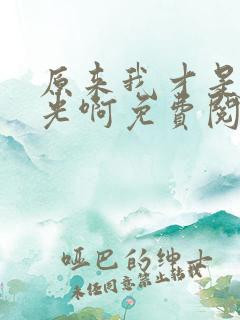 原来我才是
光啊免费阅
哑巴的绅士
未经同意禁止转载